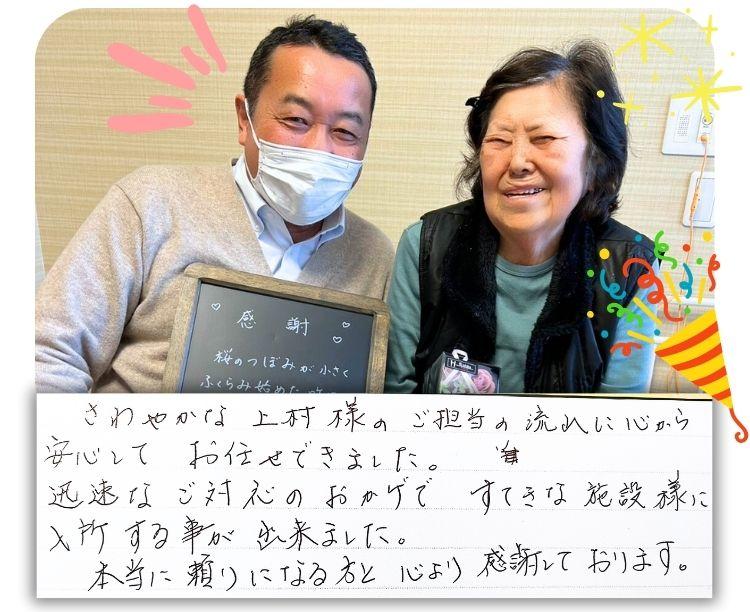 感謝
桜のつぼみが小さく
ふくらみ始めた
さわやかな 上村様の ご担当の 流れに心から
安心して お任せできました。
迅速な ご対応の おかげで すてきな 施設様に
入所する事が 出来ました。
本当に 頼りになる方と 心より 感謝して おります。